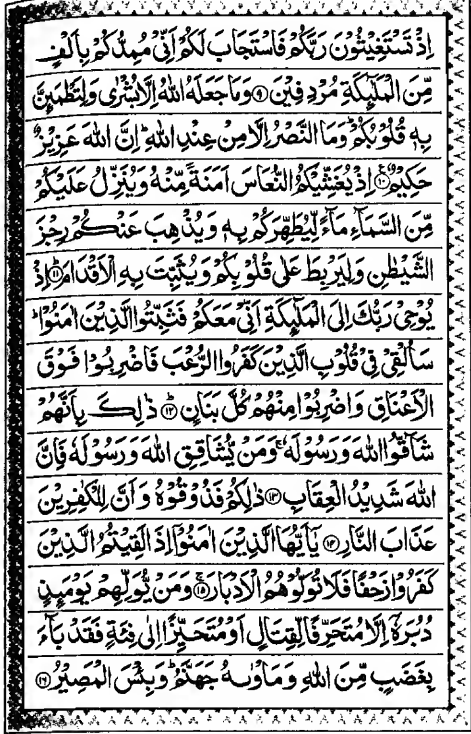 اِذْ تَسْتَغِيْثُوْنَ رَبَّكُمْ فَاسْتَجَابَ لَكُمْ اَنِّيْ مُمِدُّكُمْ بِاَلْفٍ
مِّنَ الْمَلٰٓئِكَةِ مُرْدِفِيْنَ ۹ وَمَا جَعَلَهُ اللّٰهُ اِلَّا بُشْرٰى وَلِتَطْمَئِنَّ
بِهٖ قُلُوْبُكُمْ ؕ وَمَا النَّصْرُ اِلَّا مِنْ عِنْدِ اللّٰهِ ؕ اِنَّ اللّٰهَ عَزِيْزٌ
حَكِيْمٌ ۱۰ اِذْ يُغَشِّيْكُمُ النُّعَاسَ اَمَنَةً مِّنْهُ وَيُنَزِّلُ عَلَيْكُمْ
مِّنَ السَّمَآءِ مَآءً لِّيُطَهِّرَكُمْ بِهٖ وَيُذْهِبَ عَنْكُمْ رِجْزَ
الشَّيْطٰنِ وَلِيَرْبِطَ عَلٰى قُلُوْبِكُمْ وَيُثَبِّتَ بِهِ الْاَقْدَامَ ۱۱ اِذْ
يُوْحِيْ رَبُّكَ اِلَى الْمَلٰٓئِكَةِ اَنِّيْ مَعَكُمْ فَثَبِّتُوا الَّذِيْنَ اٰمَنُوْا ؕ
سَاُلْقِيْ فِيْ قُلُوْبِ الَّذِيْنَ كَفَرُوا الرُّعْبَ فَاضْرِبُوْا فَوْقَ
الْاَعْنَاقِ وَاضْرِبُوْا مِنْهُمْ كُلَّ بَنَانٍ ۱۲ ذٰلِكَ بِاَنَّهُمْ
شَآقُّوا اللّٰهَ وَرَسُوْلَهٗ ۚ وَمَنْ يُّشَاقِقِ اللّٰهَ وَرَسُوْلَهٗ فَاِنَّ
اللّٰهَ شَدِيْدُ الْعِقَابِ ۱۳ ذٰلِكُمْ فَذُوْقُوْهُ وَاَنَّ لِلْكٰفِرِيْنَ
عَذَابَ النَّارِ ۱۴ يٰٓاَيُّهَا الَّذِيْنَ اٰمَنُوْٓا اِذَا لَقِيْتُمُ الَّذِيْنَ
كَفَرُوْا زَحْفًا فَلَا تُوَلُّوْهُمُ الْاَدْبَارَ ۱۵ وَمَنْ يُّوَلِّهِمْ يَوْمَئِذٍ
دُبُرَهٗٓ اِلَّا مُتَحَرِّفًا لِّقِتَالٍ اَوْ مُتَحَيِّزًا اِلٰى فِئَةٍ فَقَدْ بَآءَ
بِغَضَبٍ مِّنَ اللّٰهِ وَمَاْوٰىهُ جَهَنَّمُ ؕ وَبِئْسَ الْمَصِيْرُ ۱۶